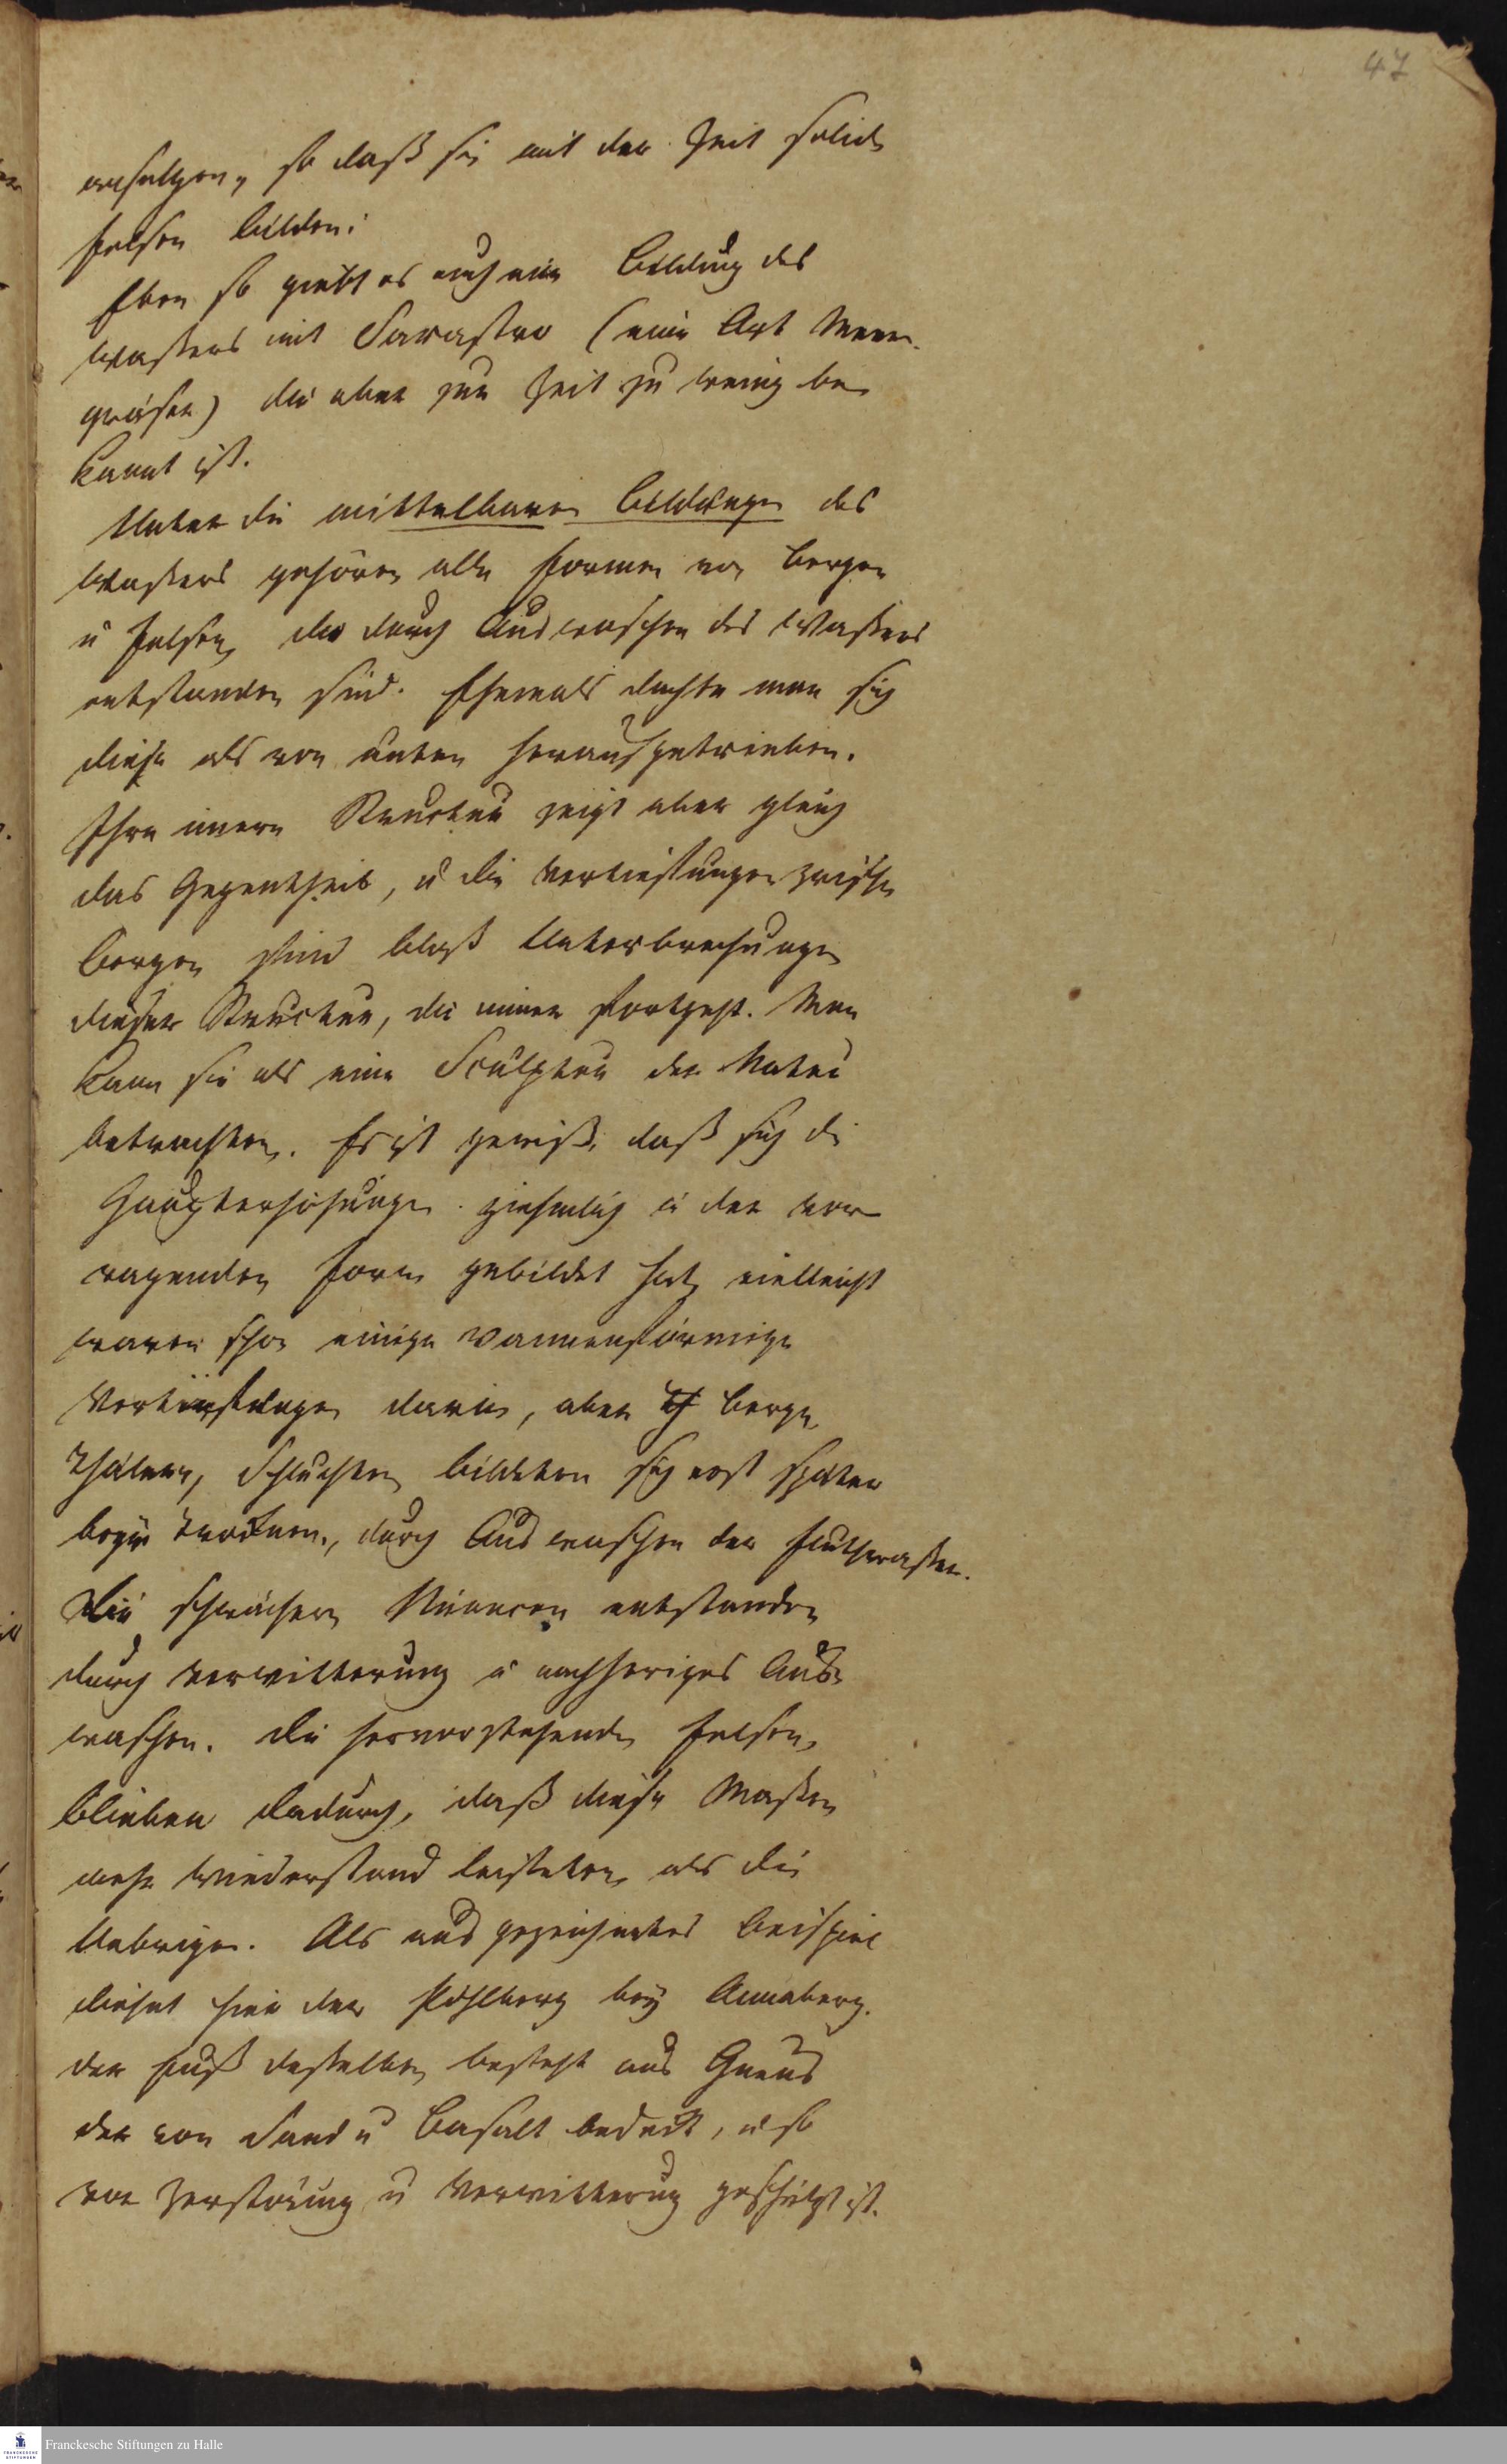 47
anfolgen, so daß sie mit der Zeit solide
Felsen bilden.
Eben so giebt es auch eine Bildung des
Waßers mit (eine Art Meer-
gräser) die aber zur Zeit zu wenig be-
kannt ist.
Unter die mittelbaren Bildungen des
Waßers gehören alle Formen von Bergen
u Felsen, die durch Auswaschen des Waßers
entstanden sind. Ehemals dachte man sich
diese als von unten heraufgetrieben.
Ihre innere Structur zeigt aber gleich
das Gegentheil, u die Vertiefungen zwischen
Bergen sind bloß Unterbrechungen
dieser Structur, die immer fortgeht. Man
kann sie als eine Sculptur der Natur
betrachten. Es ist gewiß, daß sich die
Haupterhöhungen ziehmlich in der vor
ragenden Form gebildet hat, vielleicht
waren schon einige wannenförmige
Vertiefungen darin, aber Berge,
Thäler, Schluchten bildeten sich erst später
beym Trocknen, durch Auswaschen der Fluthwaßer.
Die schwächern Nüancen entstanden
durch Verwitterung u nachheriges Aus-
waschen. Die hervorstehenden Felsen,
blieben dadurch, daß diese Maßen
mehr Wiederstand leisteten, als die
Uebrigen. Als ausgezeichnetes Beispiel
dienet hier der Pöhlberg bey Annaberg.
der Fuß deßelben besteht aus Gneus
der von Sand u Basalt bedeckt, u so
vor Zerstörung u Verwitterung geschützt ist.
Franckesche Stiftungen zu Halle